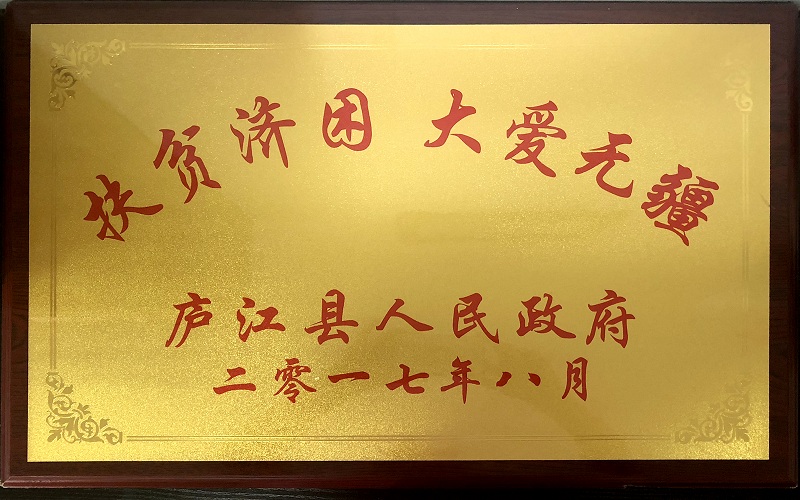 扶贫济困 大爱无疆
庐江县人民政府
二零一七年八月